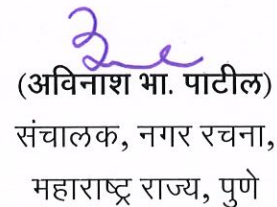 (अविनाश भा. पाटील)
संचालक, नगर रचना,
महाराष्ट्र राज्य, पुणे